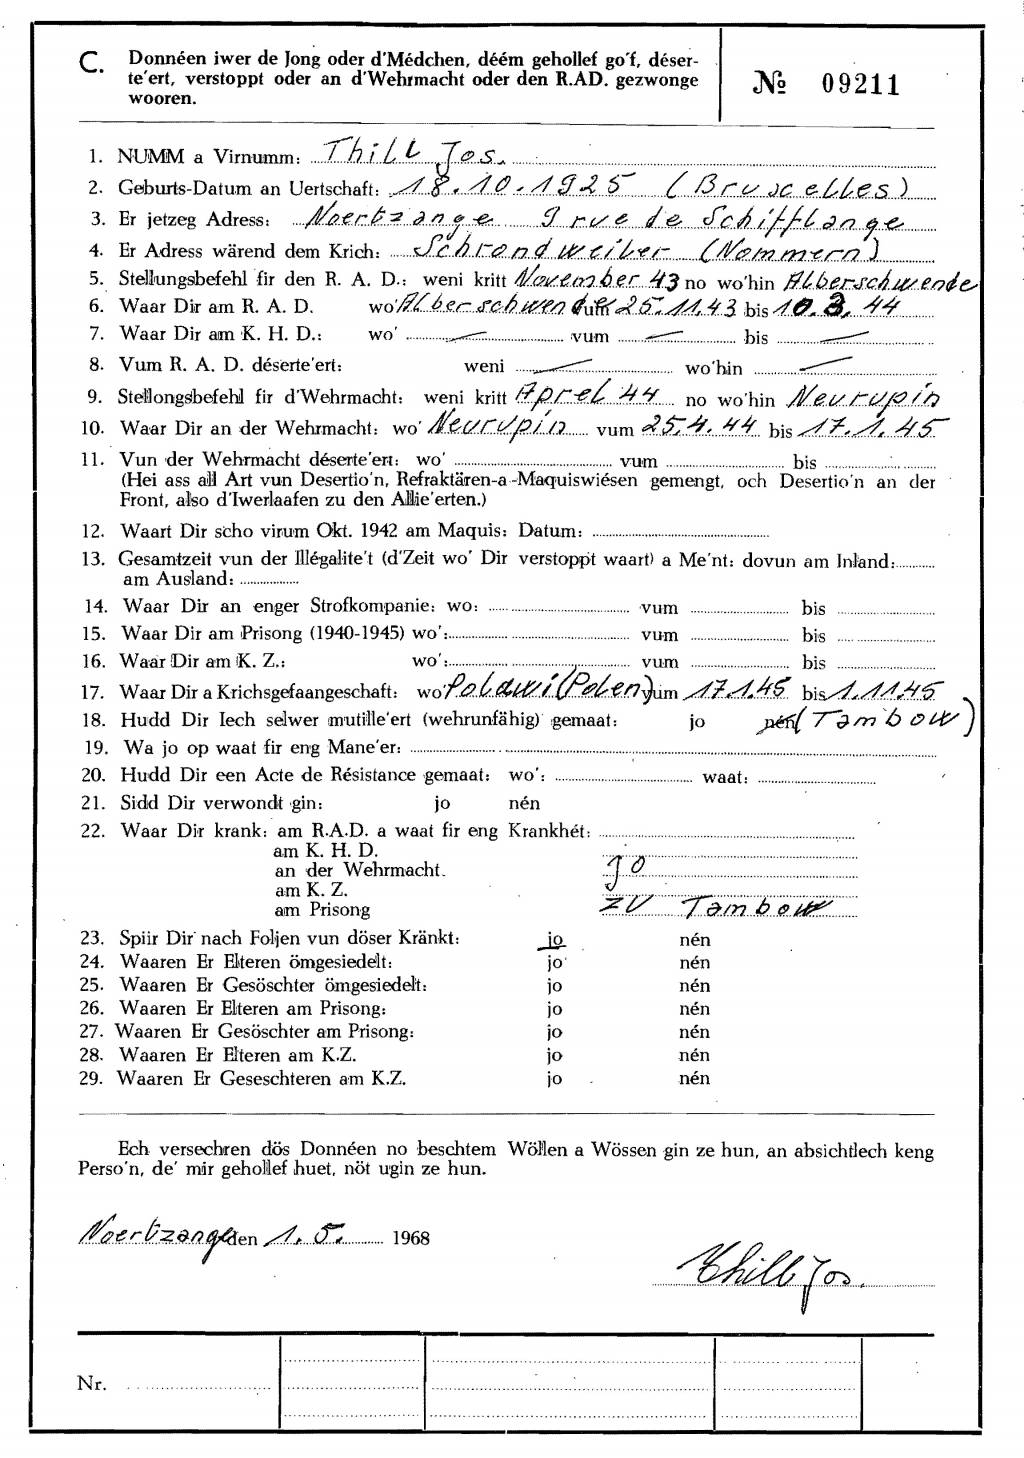 C. Donnéen iwer de Jong oder d'Médchen, déém gehollef go'f, déser-
te'ert, verstoppt oder an d'Wehrmacht oder den R.AD. gezwonge
wooren.
№ 09211
1. NUMM a Virnumm: Thill Jos.
2. Geburts-Datum an Uertschaft: 18.10.1925 (Bruxelles)
3. Er jetzeg Adress: Noertzange 9 rue de Schifflange
4. Er Adress wärend dem Krich: Schrondweiler (Nommern)
5. Stellungsbefehl fir den R. A. D.: weni kritt November 43 no wo'hin Alberschwende
6. Waar Dir am R. A. D. wo' Alberschwende vum 25.11.43 bis 10.3.44
7. Waar Dir am K. H. D.: wo' — vum — bis —
8. Vum R. A. D. déserte'ert: weni — wo'hin —
9. Stellongsbefehl fir d'Wehrmacht: weni kritt Aprel 44 no wo'hin Neurupin
10. Waar Dir an der Wehrmacht: wo' Neurupin vum 25.4.44 bis 17.1.45
11. Vun der Wehrmacht déserte'ert: wo' vum bis
(Hei ass all Art vun Desertio'n, Refraktären-a-Maquiswiésen gemengt, och Desertio'n an der
Front, also d'Iwerlaafen zu den Allie'erten.)
12. Waart Dir scho virum Okt. 1942 am Maquis: Datum:
13. Gesamtzeit vun der Illégalite't (d'Zeit wo' Dir verstoppt waart) a Me'nt: dovun am Inland:
am Ausland:
14. Waar Dir an enger Strofkompanie: wo: vum bis
15. Waar Dir am Prisong (1940-1945) wo': vum bis
16. Waar Dir am K. Z.: wo': vum bis
17. Waar Dir a Krichsgefaangeschaft: wo' Polawi (Polen) vum 17.1.45 bis 1.11.45
18. Hudd Dir Iech selwer mutille'ert (wehrunfähig) gemaat: jo nén (Tambow)
19. Wa jo op waat fir eng Mane'er:
20. Hudd Dir een Acte de Résistance gemaat: wo': waat:
21. Sidd Dir verwondt gin: jo nén
22. Waar Dir krank: am R.A.D. a waat fir eng Krankhét:
am K. H. D.
an der Wehrmacht. jo
am K. Z.
am Prisong zu Tambow
23. Spiir Dir nach Foljen vun döser Kränkt: jo nén
24. Waaren Er Elteren ömgesiedelt: jo nén
25. Waaren Er Gesöschter ömgesiedelt: jo nén
26. Waaren Er Elteren am Prisong: jo nén
27. Waaren Er Gesöschter am Prisong: jo nén
28. Waaren Er Elteren am K.Z. jo nén
29. Waaren Er Geseschteren am K.Z. jo nén
Ech versechren dös Donnéen no beschtem Wöllen a Wössen gin ze hun, an absichtlech keng
Perso'n, de' mir gehollef huet, nöt ugin ze hun.
Noertzange den 1. 5. 1968
Thill Jos.
Nr.